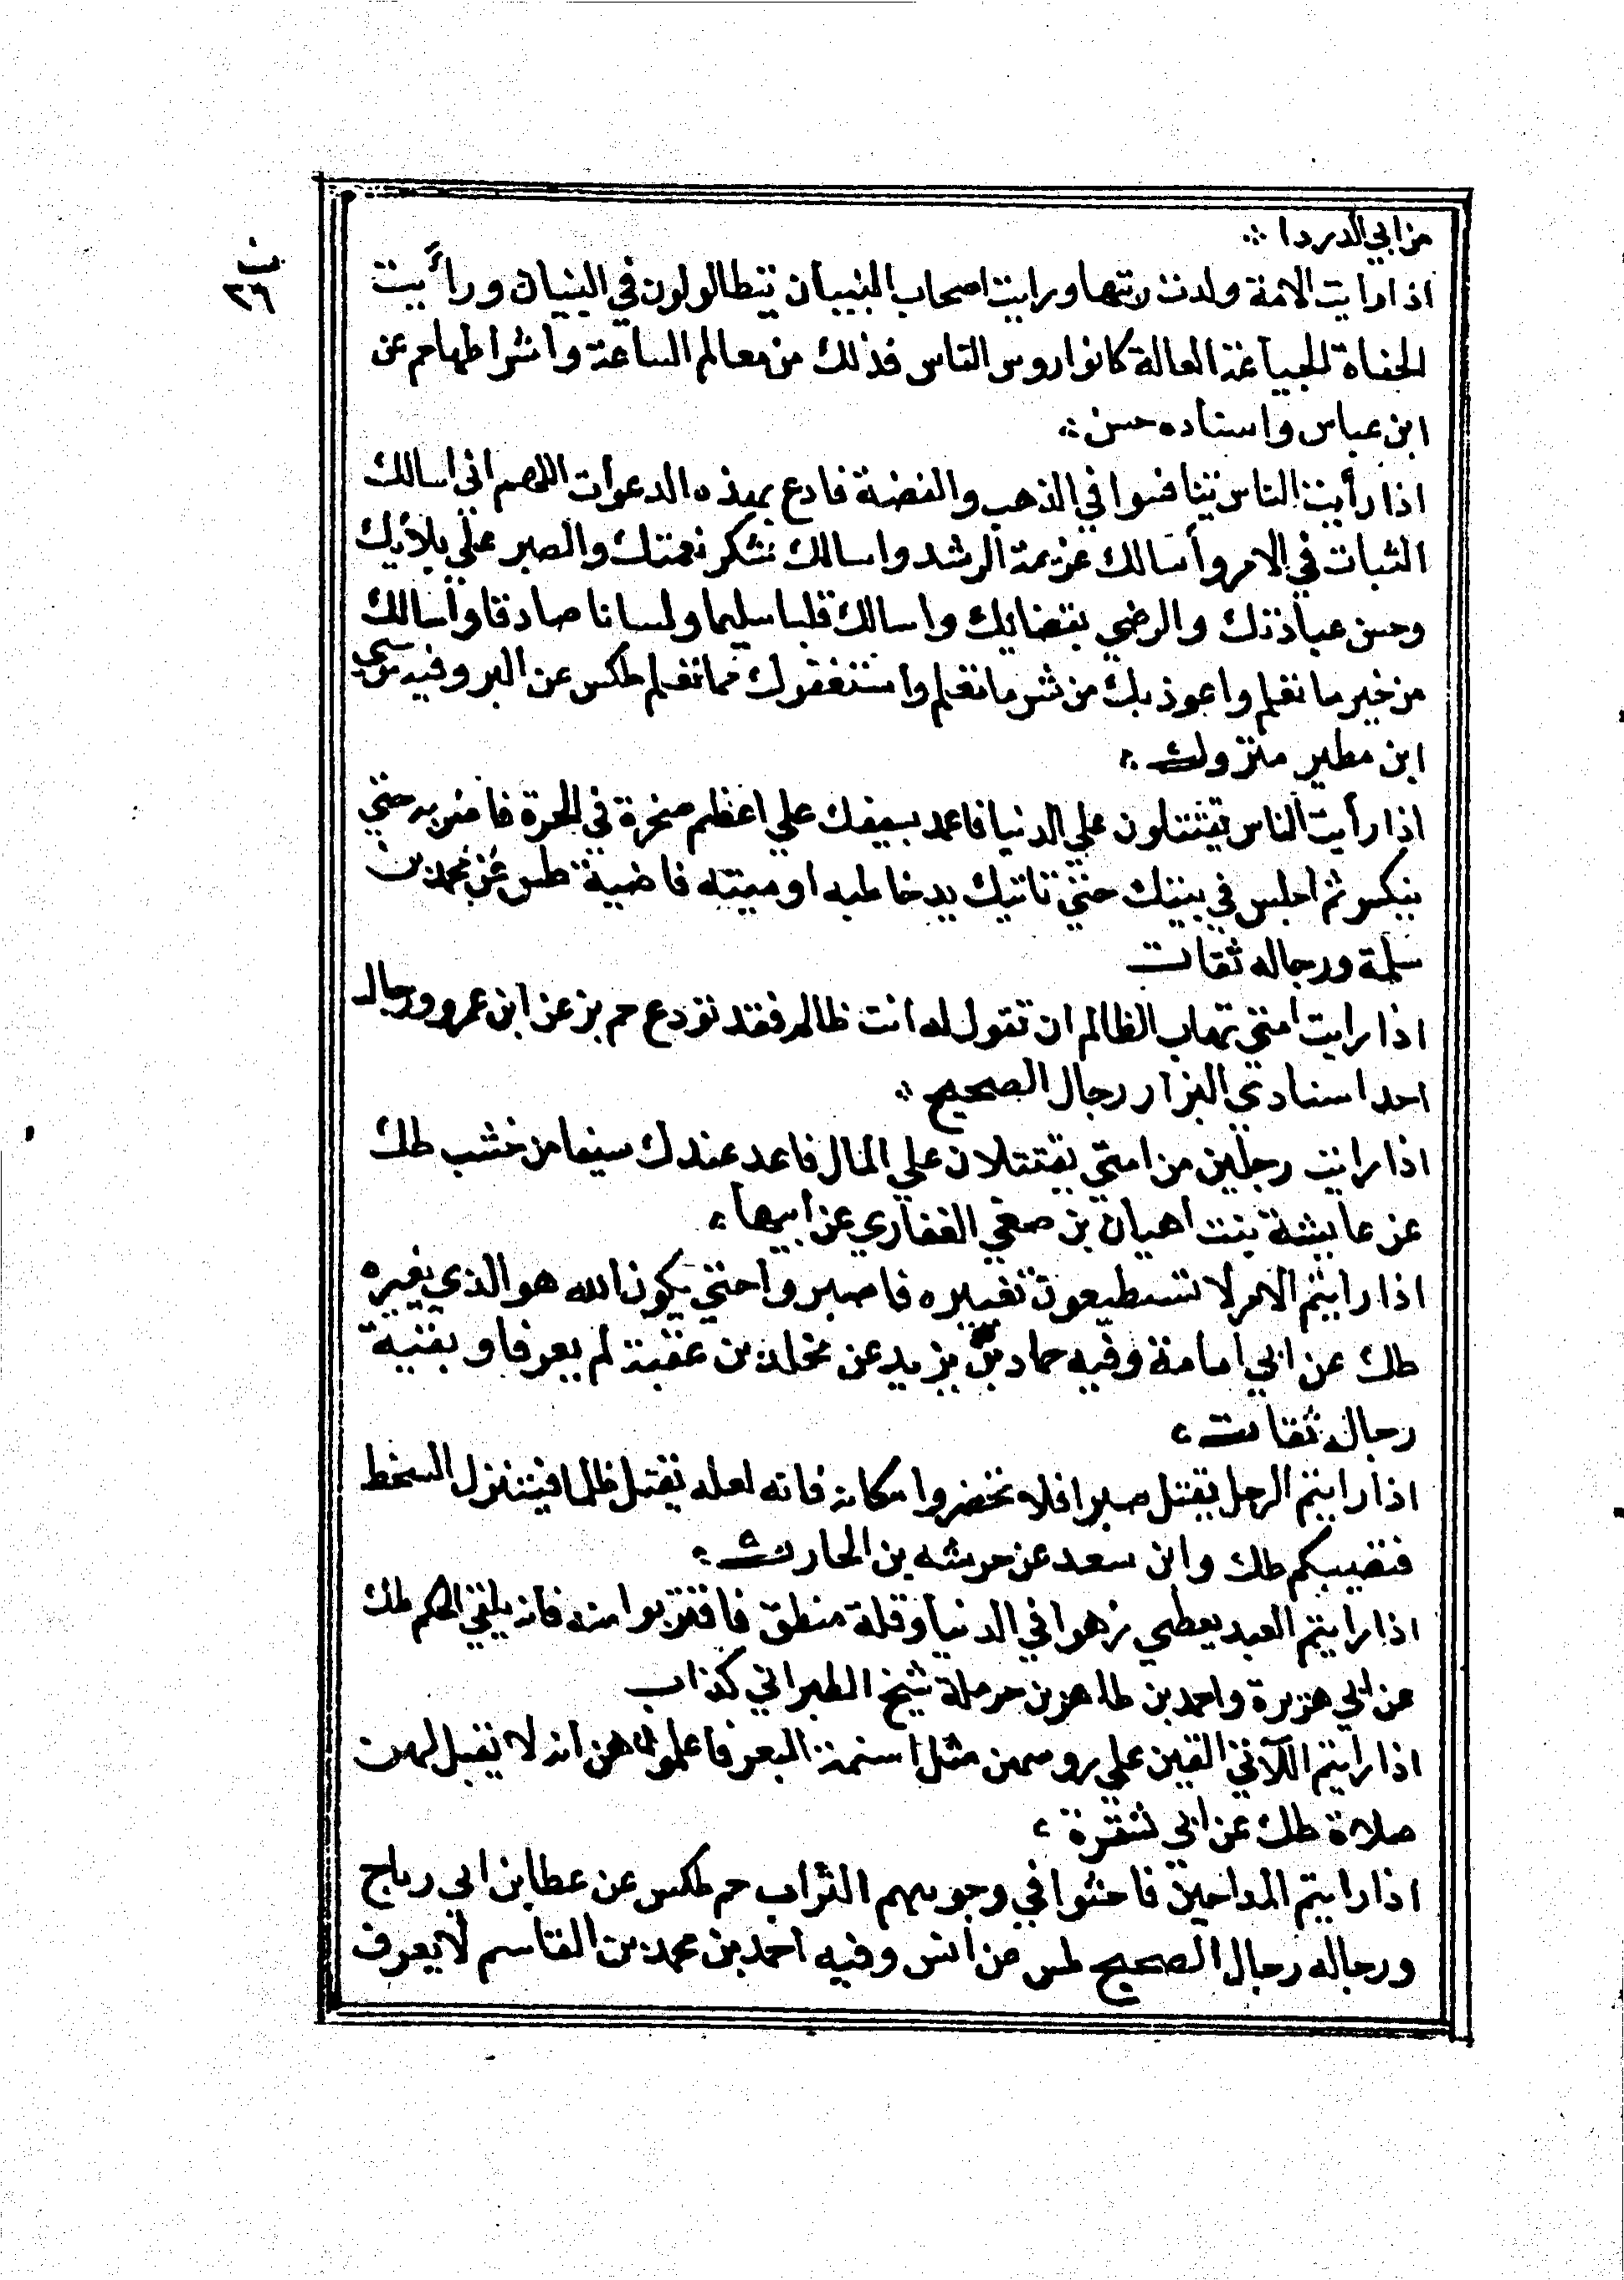 من ابي الدردا ∴
ن
٣٦
اذا رايت الامة ولدت ربتها ورايت اصحاب البنيان يتطالولون في البنيان ورأيت
الحفاة الجياعة العالة كانوا روس الناس فذلك من معالم الساعة واشراطها حم عن
ابن عباس واسناده حسن ∴
اذا رأيت الناس يتنافسوا في الذهب والفضة فادع بهذه الدعوات اللهم اني اسالك
الثبات في الامر وأسالك عزيمة الرشد واسالك شكر نعمتك والصبر علي بلايك
وحسن عبادتك والرضي بقضايك واسالك قلبا سليما ولسانا صادقا وأسالك
من خير ما تعلم واعوذ بك من شر ما تعلم واستغفرك مما تعلم طكس عن البر وفيه موسي
ابن مطير متروك ∴
اذا رأيت الناس يقتتلون علي الدنيا فاعمد بسيفك علي اعظم صخرة في الحرة فاضربه حتي
ينكسر ثم اجلس في بيتك حتي تاتيك يد خاطيه او ميتته قاضية طس عن محمد بن
سلمة ورجاله ثقات
اذا رايت امتي تهاب الظالم ان تقول له انت ظالم فقد تودع حم بز عن ابن عمرو ورجال
احد اسنادي البزار رجال الصحيح ∴
اذا رايت رجلين من امتي يقتتلان علي المال فاعد عندك سيفا من خشب طك
عن عايشة بنت اهبان بن صفي الغفاري عن ابيها ∴
اذا رايتم الامر لا تستطيعون تغييره فاصبروا حتي يكون الله هو الذي يغيره
طك عن ابي امامة وفيه حماد بن يزيد عن مخلد بن عقبة لم يعرفا وبقية
رجاله ثقات ∴
اذا رايتم الرجل يقتل صبرا فلا تحضروا مكانه فانه لعله يقتل ظلما فيتنزل السخط
فتصيبكم طك وابن سعد عن حرشه بن الحارث ∴
اذا رايتم العبد يعطي زهوا في الدنيا وقلة منطق فاقتربوا منه فانه يلقي الحكم طك
عن ابي هريرة واحمد بن طاهر بن حرملة شيخ الطبراني كذاب
اذا رايتم اللاتي القين علي روسهن مثل اسنمة البعر فاعلموهن انه لا تقبل لهن
صلاة طك عن ابي شقرة ∴
اذا رايتم المداحين فاحثوا في وجوههم التراب حم طكس عن عطا بن ابي رباح
ورجاله رجال الصحيح طس عن انس وفيه احمد بن محمد بن القاسم لا يعرف